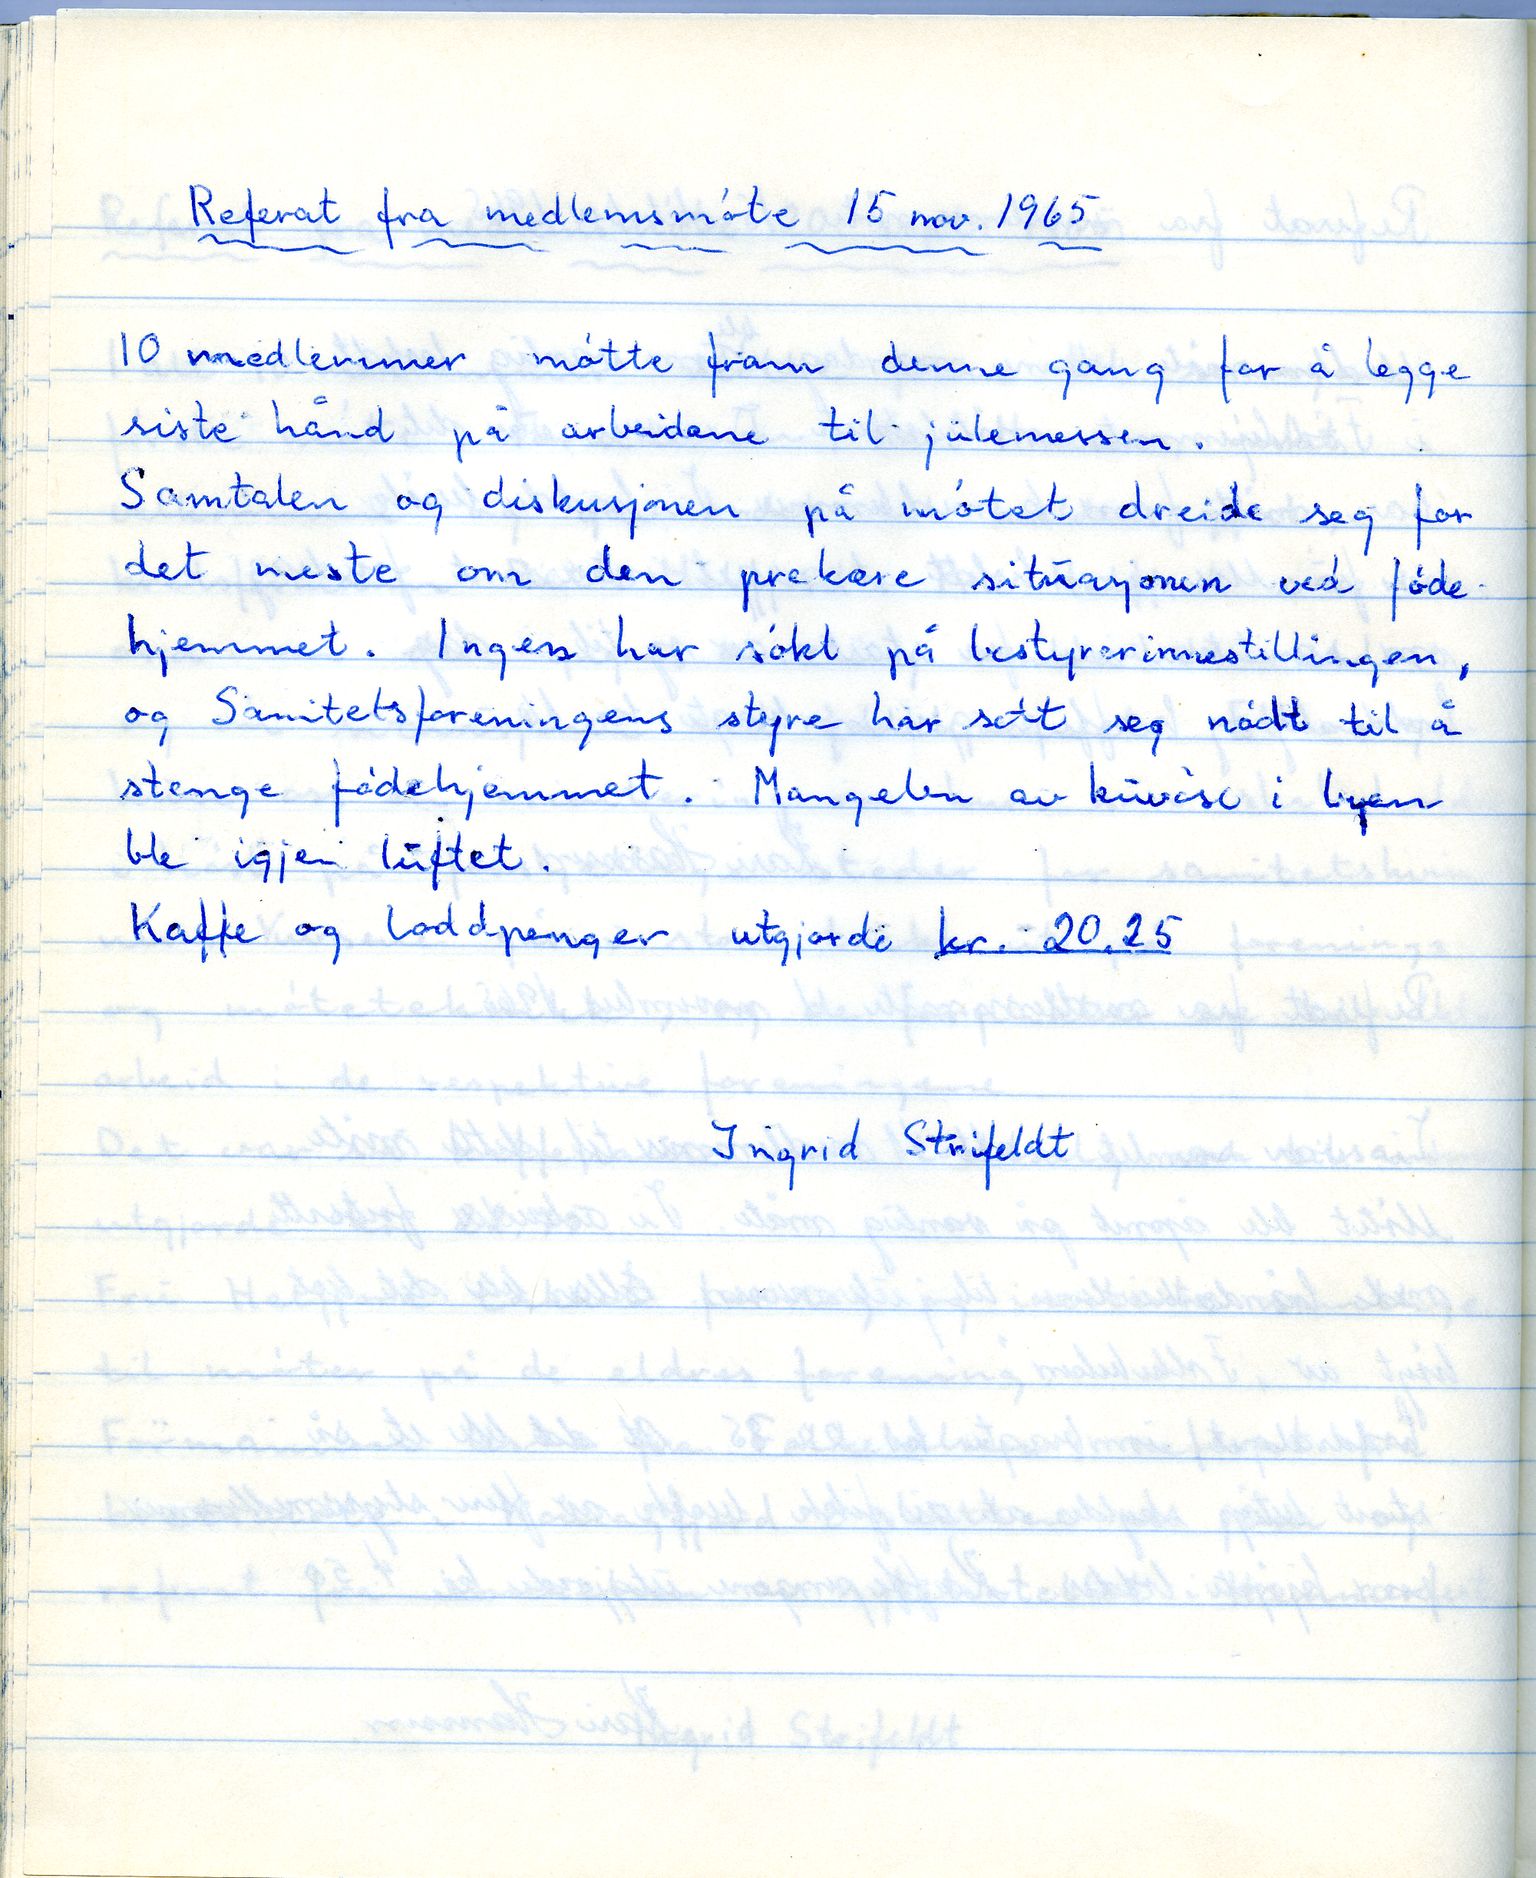 Referat fra medlemsmøte 15 nov. 1965
10 medlemmer møtte fram denne gang for å legge
siste hånd på arbeidene til julemessen.
Samtalen og diskusjonen på møtet dreide seg for
det meste om den prekære situasjonen ved føde-
hjemmet. Ingen har søkt på bestyrerinnestillingen,
og Sanitetsforeningens styre har sett seg nødt til å
stenge fødehjemmet. Mangelen av kuvøse i byen
ble igjen luftet.
Kaffe og loddpenger utgjorde kr. 20.25
Ingrid Strifeldt